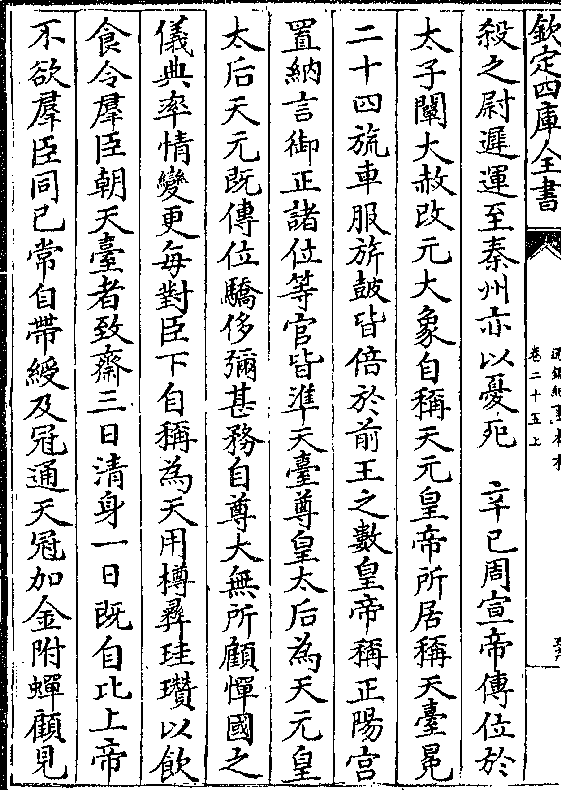 欽定四庫全書
通鑑紀事本末
卷二十五上
殺之尉遲運至秦州亦以憂死　辛巳周宣帝傳位於
太子闡大赦改元大象自稱天元皇帝所居稱天臺冕
二十四旒車服旂鼓皆倍於前王之數皇帝稱正陽宫
置納言御正諸位等官皆準天臺尊皇太后為天元皇
太后天元既傳位驕侈彌甚務自尊大無所顧憚國之
儀典率情變更每對臣下自稱為天用樽彛珪瓚以飲
食令羣臣朝天臺者致齋三日清身一日既自比上帝
不欲羣臣同己常自帶綬及冠通天冠加金附蟬顧見